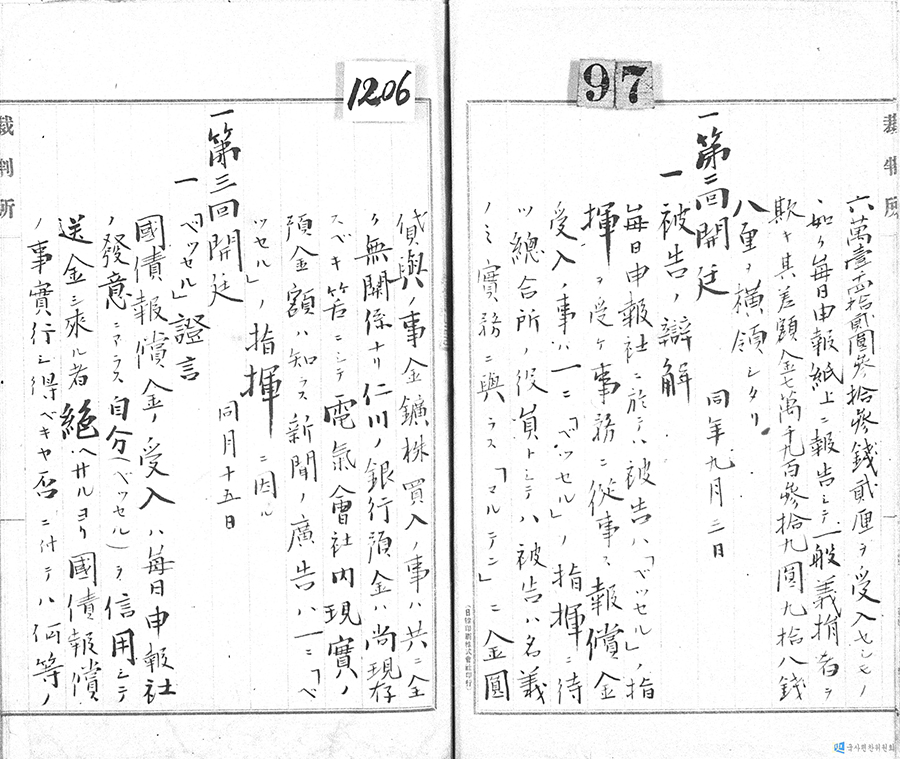 97
裁判所
六萬壹千貳拾貳圓參拾參錢貳厘ヲ受入セシモノ
ヽ如ク每日申報紙上ニ報告シテ一般義捐者ヲ
欺キ其差額金七萬千九百參拾九圓九拾八錢
八厘ヲ橫領シタリ
一第二回開廷 同年九月三日
一被告ノ辯解
每日申報社ニ於テハ被告ハ「ベッセル」ノ指
揮ヲ受ケ事務ニ從事ス報償金
受入ノ事ハ一ニ「ベッセル」ノ指揮ニ待
ツ總合所ノ役員トシテハ被告ハ名義
ノミ實務ニ與ラス「マルテン」ニ金圓
日韓印刷株式會社印行
1206
貸與ノ事金鑛株買入ノ事ハ共ニ全
ク無關係ナリ仁川ノ銀行預金ハ尚現存
スベキ筈ニシテ電氣會社內現實ノ
預金額ハ知ラス新聞ノ廣告ハ一ニ「ベ
ッセル」ノ指揮ニ因ル
一第三回開廷 同月十五日
一「ベッセル」證言
國債報償金ノ受入ハ每日申報社
ノ發意ニアラス自分(ベッセル)ヲ信用シテ
送金シ來ル者絕ヘサルヨリ國債報償
ノ事實行シ得ベキヤ否ニ付テハ何等ノ
裁判所
국사편찬위원회